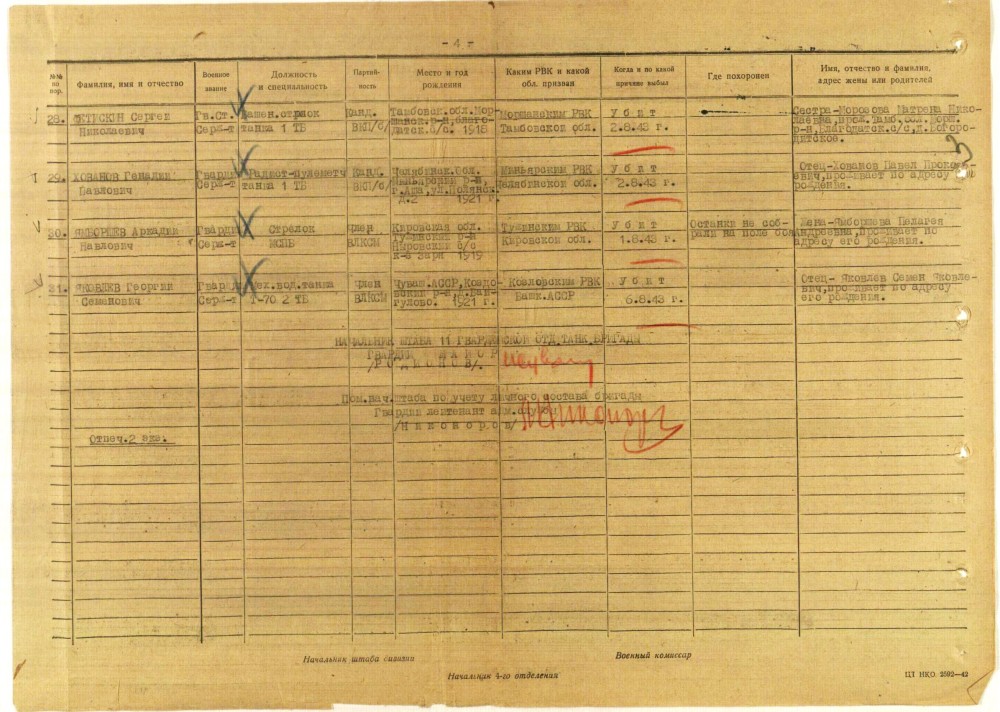 - 4 -
№№ по пор.
Фамилия, имя и отчество
Военное звание
Должность и специальность
Партий-ность
Место и год рождения
Каким РВК и какой обл. призван
Когда и по какой причине выбыл
Где похоронен
Имя, отчество и фамилия, адрес жены или родителей
28. Сергей Гв.Ст. Башен.стрлок Канд. Тамбовск.обл.Мор- Моршанским РВК У б и т Сестра-Морозова Матрена Нико-
Николаевич Серж-т танка 1 ТБ ВКП/б/ 1918 Тамбовской обл. 2.8.43 г.
29. ХОВАНОВ Генадий Гвардии Радист-пулеметч Канд. Челябинск.обл. Миньярским РВК У б и т Отец-Хованов Павел Прокопь-
Павлович Серж-т танка 1 ТБ ВКП/б/ Миньярский р-н, Челябинской обл. 2.8.43 г. евич,проживает по адресу его
г.Аша,ул.Полянск. рождения.
д.2 1921 г.
30. Аркадий Гвардии Стрелок Член Кировская обл. Тужинским РВК У б и т Останки не соб- Жена- Пелагея
Павлович Серж-т МСПБ ВЛКСМ Тужинский р-н Кировской обл. 1.8.43 г. рали на поле боя Андреевна,проживает по
к-з Заря 1919 адресу его рождения.
31. ЯКОВЛЕВ Георгий Гвардии Мех.вод.танка Член Чуваш.АССР,Козло- Козловским РВК У б и т Отец- Яковлев Семен Яковле-
Семенович Серж-т Т-70 2 ТБ ВЛКСМ вский р-н 1921 г. Башк.АССР 6.8.43 г. вич,проживает по адресу
его рождения.
НАЧАЛЬНИК ШТАБА 11 ГВАРДЕЙСКОЙ ОТД.ТАНК.БРИГАДЫ
ГВАРДИИ МАЙОР
/Р О Д И О Н О В/.
Пом.нач.штаба по учету личного состава бригады
Гвардии лейтенант адм.службы
/Н и к о н о р о в/
Отпеч.2 экз.
Начальник штаба дивизии
Военный комиссар
Начальник 4-го отделения
ЦТ НКО 2592—42